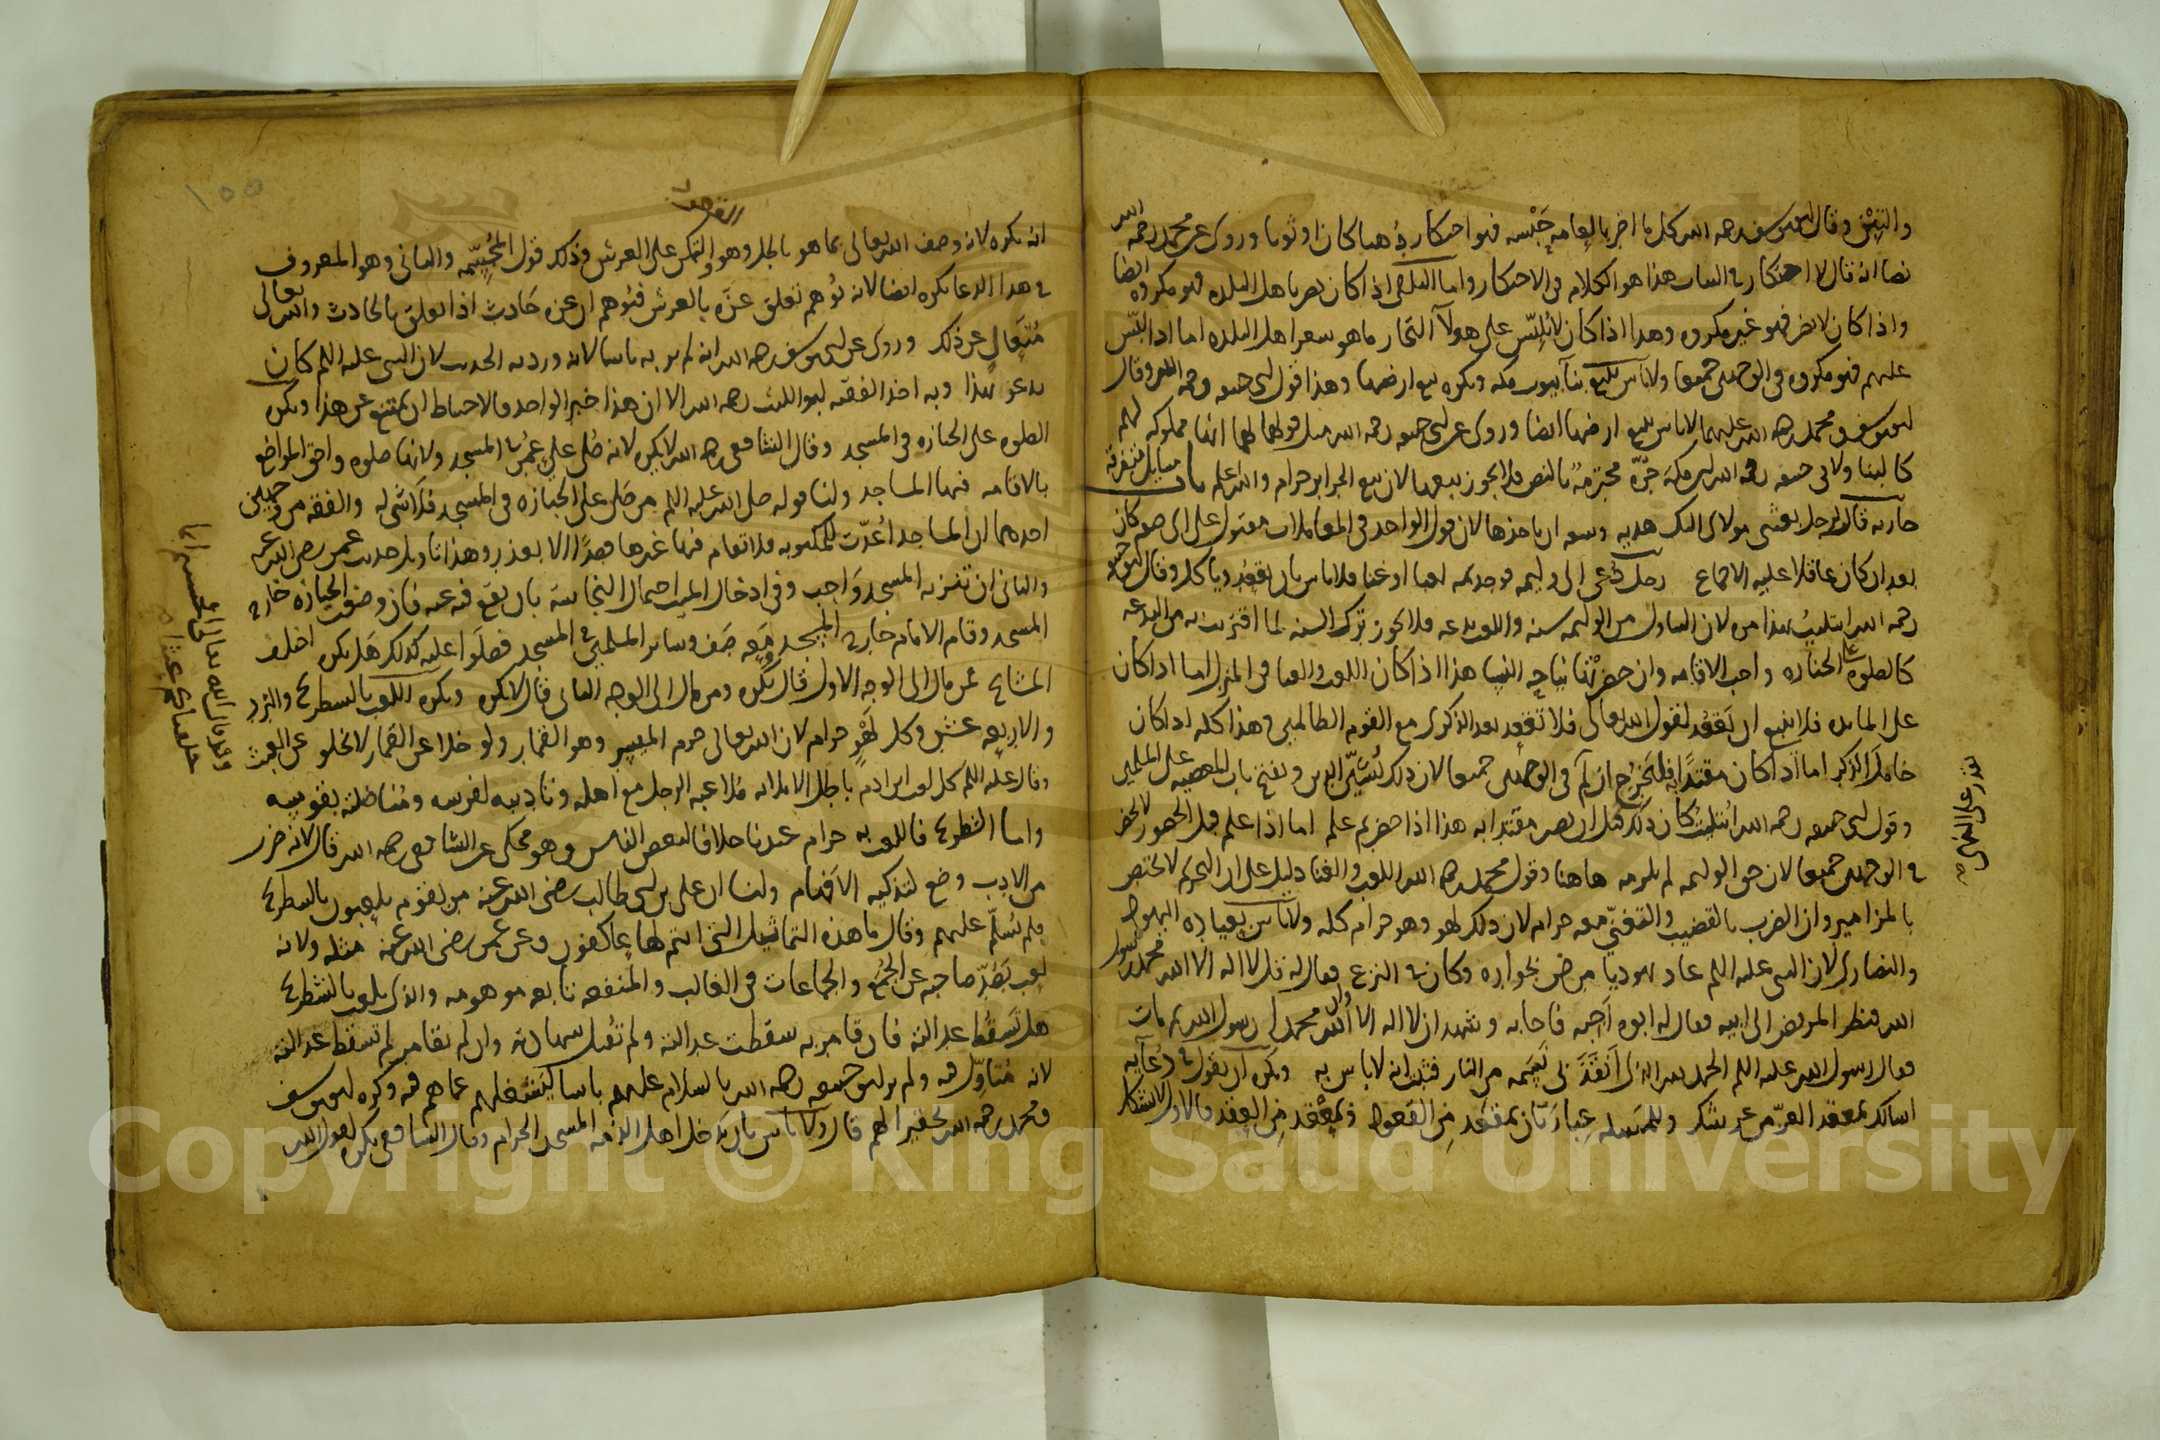 والتبن وقال ابو يوسف رحمه الله كل ما اضر بالعامه حَبْسه فهو احتكار ذهبا كان او ثوبا وروى عن محمد رحمه الله
نصا انه قال لا احتكار في الثياب هذا هو الكلام في الاحتكار واما التلقى اذا كان يضر باهل البلده فهو مكروه ايضا
واذا كان لا يضر فهو غير مكروه وهذا اذا كان لا يُلبّس على هولآ التجار ما هو سعر اهل البلده اما اذا لبّس
عليهم فهو مكروه في الوجهين جميعا ولا باس ببيع بنآ بيوت مكه ويكره بيع ارضها وهذا قول ابى حنيفه رحمه الله وقال
ابو يوسف ومحمد رحمه الله عليهما لا باس ببيع ارضها ايضا وروى عن ابى حنيفه رحمه الله مثل قولهما لهما انها مملوكه لهم
كالبنا ولابى حنيفه رحمه الله ان مكة حرّة محترمة بالنص فلا يجوز بيعها لان بيع الحراير حرام والله اعلم مسايل متفرقه
جاريه قالت لرجل بعثنى مولاى اليك هديه وسعه ان ياخذها لان قول الواحد في المعاملات مقبول على اى صفه كان
بعد ان كان عاقلا عليه الاجماع رجل دُعى الى وليمه فوجد ثمه لعبا او غنا فلا باس بان يقعد وياكل وقال ابو حنيفه
رحمه الله ابتليت بهذا مره لان التناول من الوليمه سنه واللعب بدعه فلا يجوز ترك السنه لما اقترنت به من البدعه
كالصلوه على الجنازه واجب الاقامه وان حضرتها نياحه النسا هذا اذا كان اللعب والغنا في المنزل اما اذا كان
على المايده فلا ينبغى ان يقعد لقول الله تعالى فلا تقعد بعد الذكرى مع القوم الظالمين وهذا كله اذا كان
خامل الذكر اما اذا كان مقتدًا به فليخرج في الوجهين جميعا لان ذلك يُشين الدين وفتح باب المعصيه على المسلمين
وقول ابى حنيفه رحمه الله ابتليت كان ذلك قبل ان يصير مقتدا به هذا اذا حضر ثم علم اما اذا علم قبل الحضور لا يحضر
في الوجهين جميعا لان حق الوليمه لم يلزمه هاهنا وقول محمد رحمه الله اللعب والغنا دليل على ان التحريم لا يختص
بالمزامير وان الضرب بالقضيب والتغنّى معه حرام لان ذلك لهو وهو حرام كله ولا باس بعياده اليهود
والنصارى لان النبى عليه السلم عاد يهوديا مرض بجواره وكان في النزع فقال له قل لا اله الا الله محمد رسول
الله فنظر المريض الى ابيه فقال له ابوه اَجبه فاجابه وشهد ان لا اله الا الله وان محمدا رسول الله ثم مات
فقال رسول الله عليه السلم الحمد لله الذى اَنقَذَ بى نَسَمه من النار فثبت انه لا باس به ويكره ان يقول في دُعآيه
اسالك بمعقد العزّ من عرشك وللمسله عبارتان بمقعد مِن القعود وبمعْقد مِن العقد فالاول لا شكل
نذر على النهى
١٥٥
انه يكره لانه وصف الله تعالى بما هو باطل وهو التمكن على العرش وذلك قول المُجَسّمه والثانى وهو المعروف
في هذا الدعا يكره ايضا لانه يُوهم تعلق عزّه بالعرش فيُوهم ان عزه حادث اذا تعلق بالحادث والله تعالى
مُتَعَالٍ عن ذلك وروى عن ابى يوسف رحمه الله انه لم ير به باسا لانه ورد به الحديث لان النبى عليه السلم كان
يدعو بهذا وبه اخذ الفقيه ابو الليث رحمه الله الا ان هذا خبر الواحد فالاحتياط ان يمتنع عن هذا ويكره
الصلوه على الجنازه في المسجد وقال الشافعى رحمه الله لا يكره لانه صُلى على عُمر في المسجد ولانها صلوه واحق المواضع
بالاقامه فيها المساجد ولنا قوله صلى الله عليه السلم من صَلى على الجنازه في المسجد فلا شى له والفقه من وجهين
احدهما ان المساجد اُعدّت للمكتوبه فلا تقام فيها غيرها قصدًا الا بعذر وهذا تاويل حديث عمر رضى الله عنه
والثانى ان تنزيه المسجد وَاجب وفى ادخال الميت احتمال النجاسة بان يقع فيه عنه فان وضعت الجنازه خارج
المسجد وقام الامام خارج المسجد وَمعه صَف وساير المسلمين في المسجد فصلوا عليه كذلك هَل يكره اختلف
المشايخ فمن مال الى الوجه الاول قال يُكره ومن مال الى الوجه الثانى قال لا يكره ويكره اللعب بالشطرنج والنرد
والاربعه عشر وكل لَهْو حرام لان الله تعالى حرم الميسر وهو القمار ولو خلا عن القمار لا يخلو عن العبث
وقال عليه السلم كل لعب ابن ادم باطل الا ثلاثه مُلاعبه الرجل مع اهله وتاديبه لفرسه ومُناضلته بقوسِه
واما الشطرنج فاللعب به حرام عندنا خلافا لبعض الناس وهو محكى عن الشافعى رحمه الله قال لانه ضرب
من الادب وضع لتذكيه الاَفهام ولنا ان على بن ابى طالب رضى الله عنه مر بقوم يلعبون بالشطرنج
فلم يُسلّم عليهم وقال ما هذه التماثيل التى انتم لها عاكفون وعن عمر رضى الله عنه مثله ولانه
لعب يَصُدّ صاحبه عن الجُمَع والجماعات في الغالب والمنفعه تابعه موهومه والذى يلعب بالشطرنج
هل تَسقُط عدالته فان قامر به سقطت عدالته ولم تُقبل شهادته وان لم يقامر لم تسقط عدالته
لانه مُتاوّل فيه ولم ير ابو حنيفه رحمه الله بالسلام عليهم باسا ليُشغلهم عما هم فيه وكره ابو يوسف
ومحمد رحمه الله تحقيرا لهم قال ولا باس بان يَدخل اهل الذمه المسجد الحرام وقال الشافعى يكره لقول الله
Copyright © King Saud University